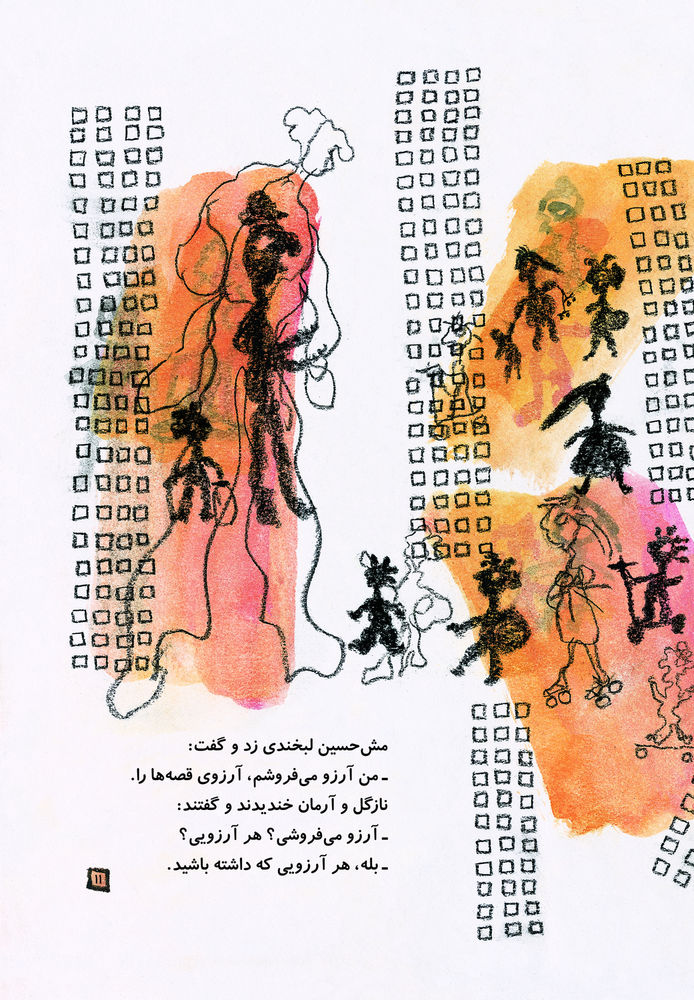 مش‌حسین لبخندی زد و گفت:
ـ من آرزو می‌فروشم، آرزوی قصه‌ها را.
نازگل و آرمان خندیدند و گفتند:
ـ آرزو می‌فروشی؟ هر آرزویی؟
ـ بله، هر آرزویی که داشته باشید.
۱۱